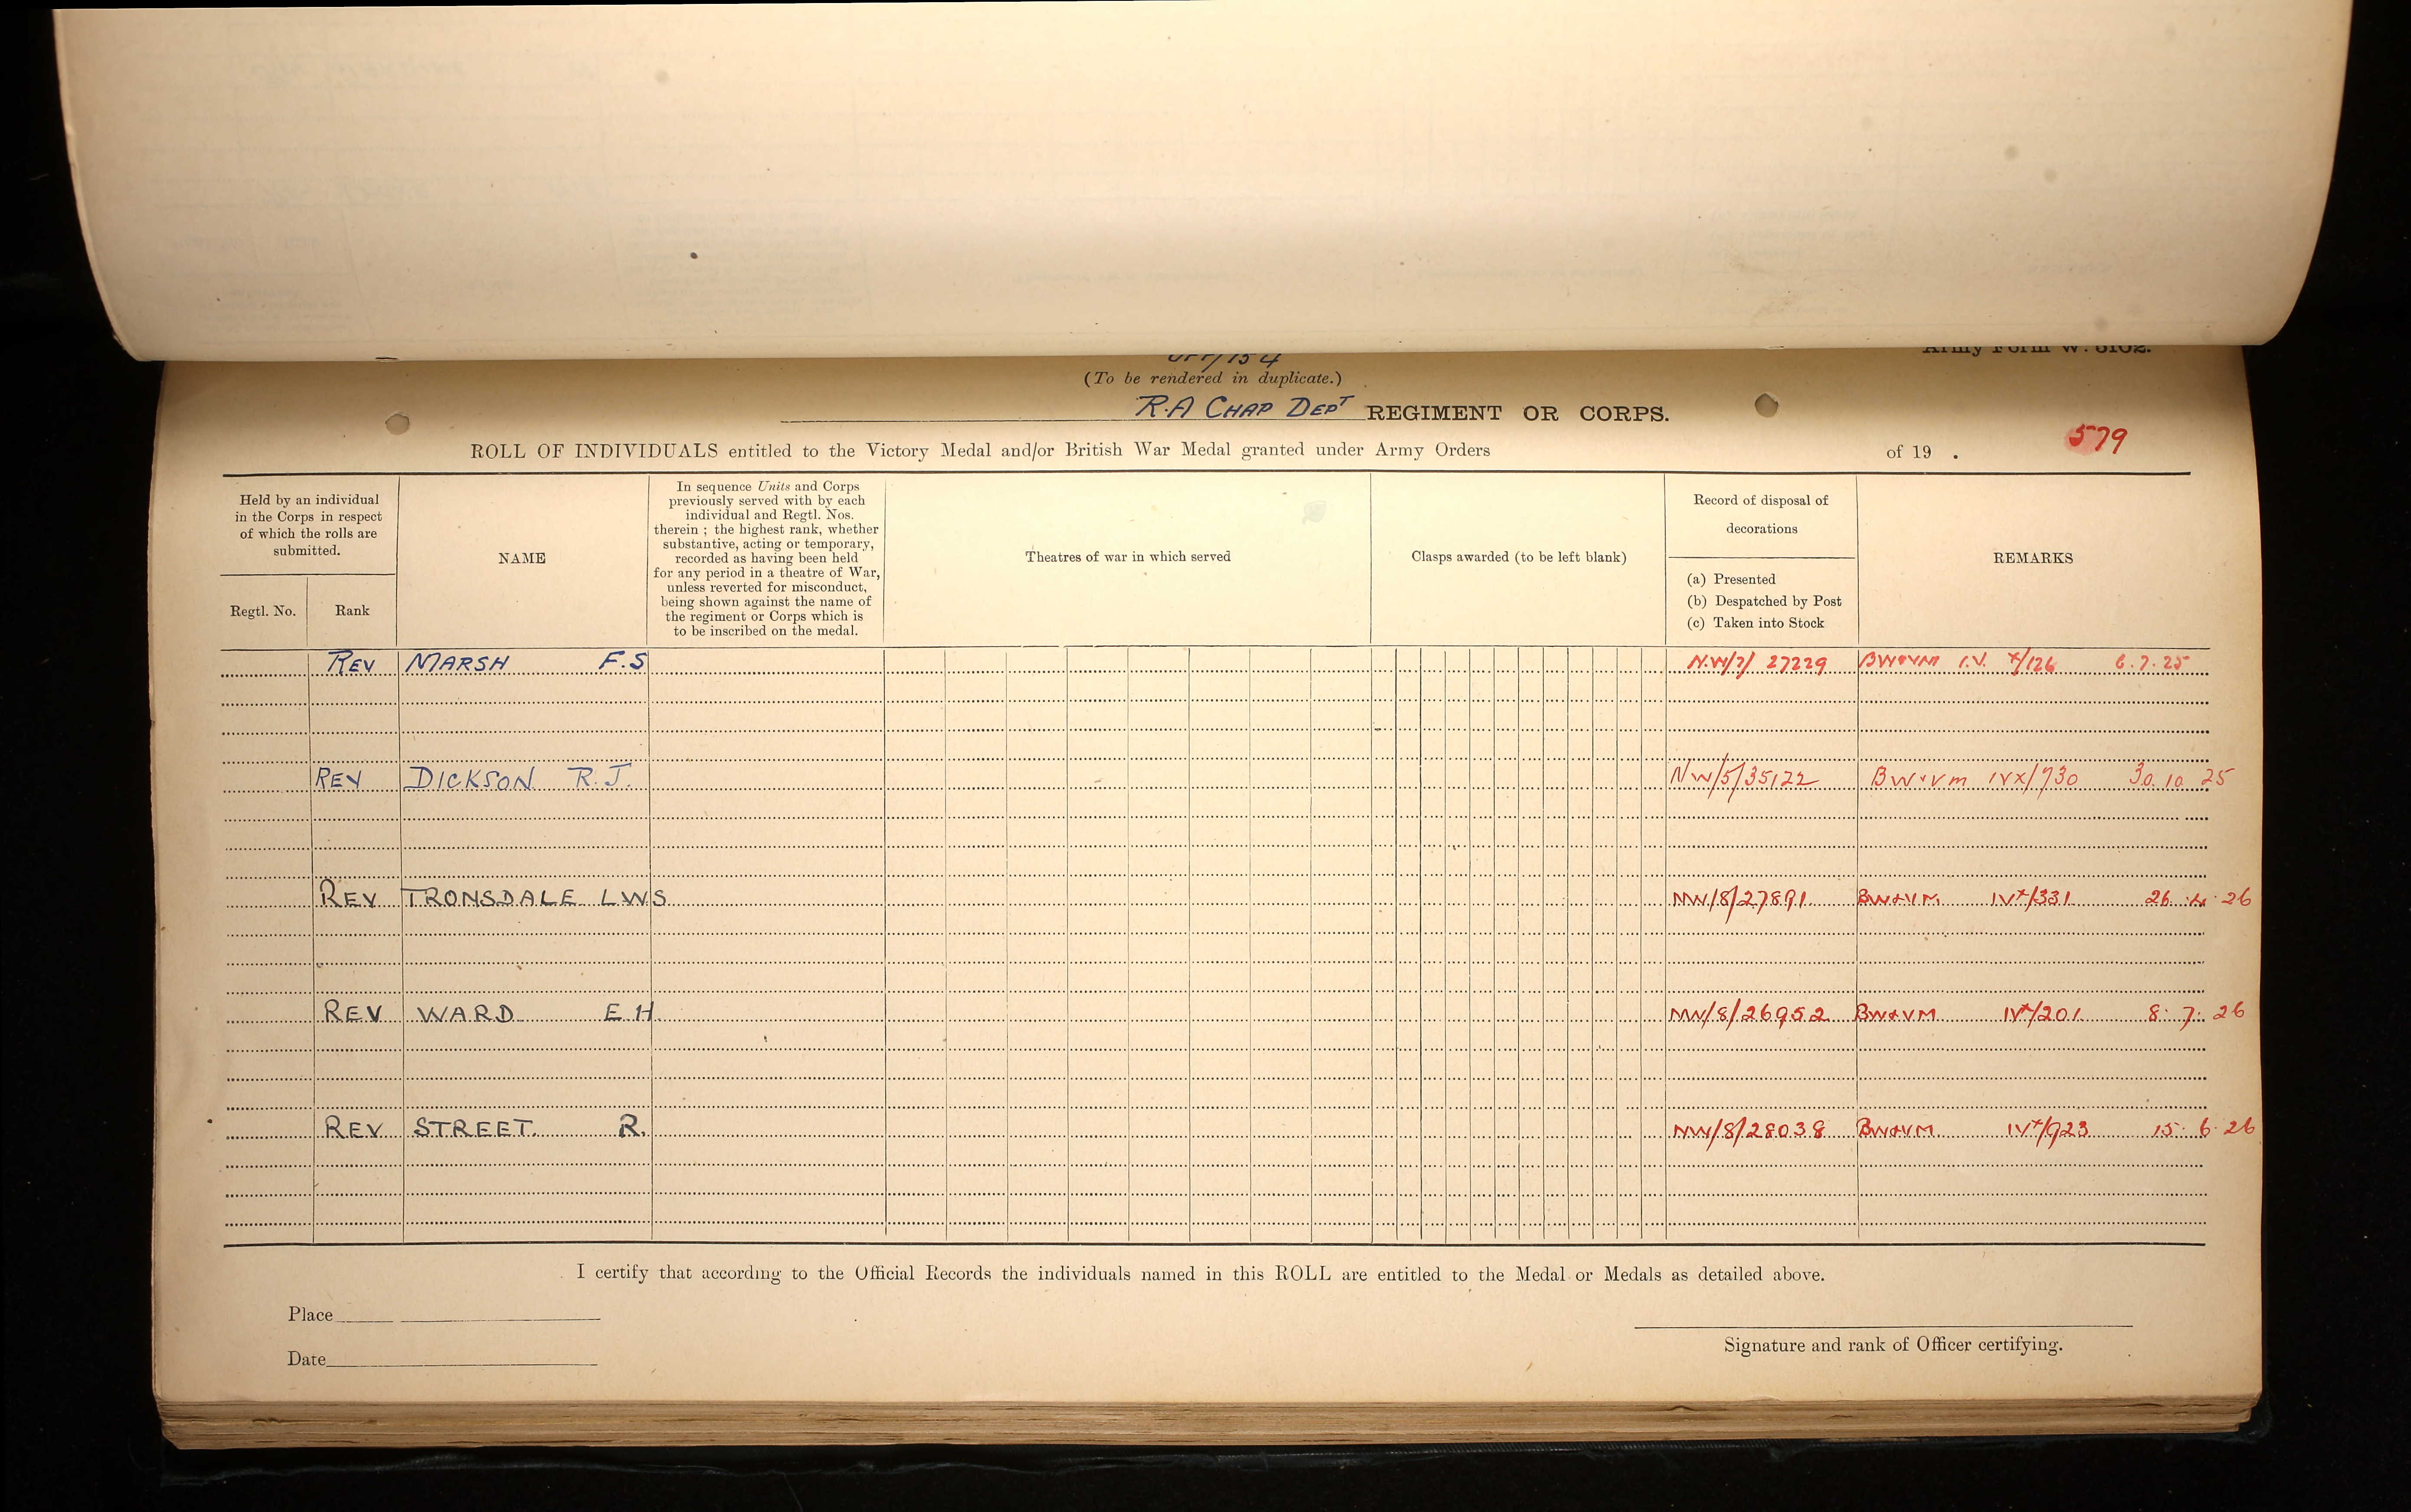 OFF/154
Army Form W. 5102.
(To be rendered in duplicate.)
R.A CHAP DEPT REGIMENT OR CORPS.
579
ROLL OF INDIVIDUALS entitled to the Victory Medal and/or British War Medal granted under Army Orders of 19 .
Held by an individual
in the Corps in respect
of which the rolls are
submitted.
Regtl. No.
Rank
NAME
In sequence Units and Corps
previously served with by each
individual and Regtl. Nos.
therein ; the highest rank, whether
substantive, acting or temporary,
recorded as having been held
for any period in a theatre of War,
unless reverted for misconduct,
being shown against the name of
the regiment or Corps which is
to be inscribed on the medal.
Theatres of war in which served
Clasps awarded (to be left blank)
Record of disposal of
decorations
(a) Presented
(b) Despatched by Post
(c) Taken into Stock
REMARKS
REV MARSH F.S N.W/7/ 27229 BW&VM I.V. X/126 6.7.25
REV DICKSON R.J. NW/5/35122 BW&VM IVX/730 30.10.25
REV TRONSDALE LWS NW/8/27891 BW&VM IVX/331 26.4.26
REV WARD E H NW/8/26952 BW&VM IVX/201 8.7.26
REV STREET. R. NW/8/28038 BW&VM IVX/923 15.6.26
I certify that according to the Official Records the individuals named in this ROLL are entitled to the Medal or Medals as detailed above.
Place
Date
Signature and rank of Officer certifying.